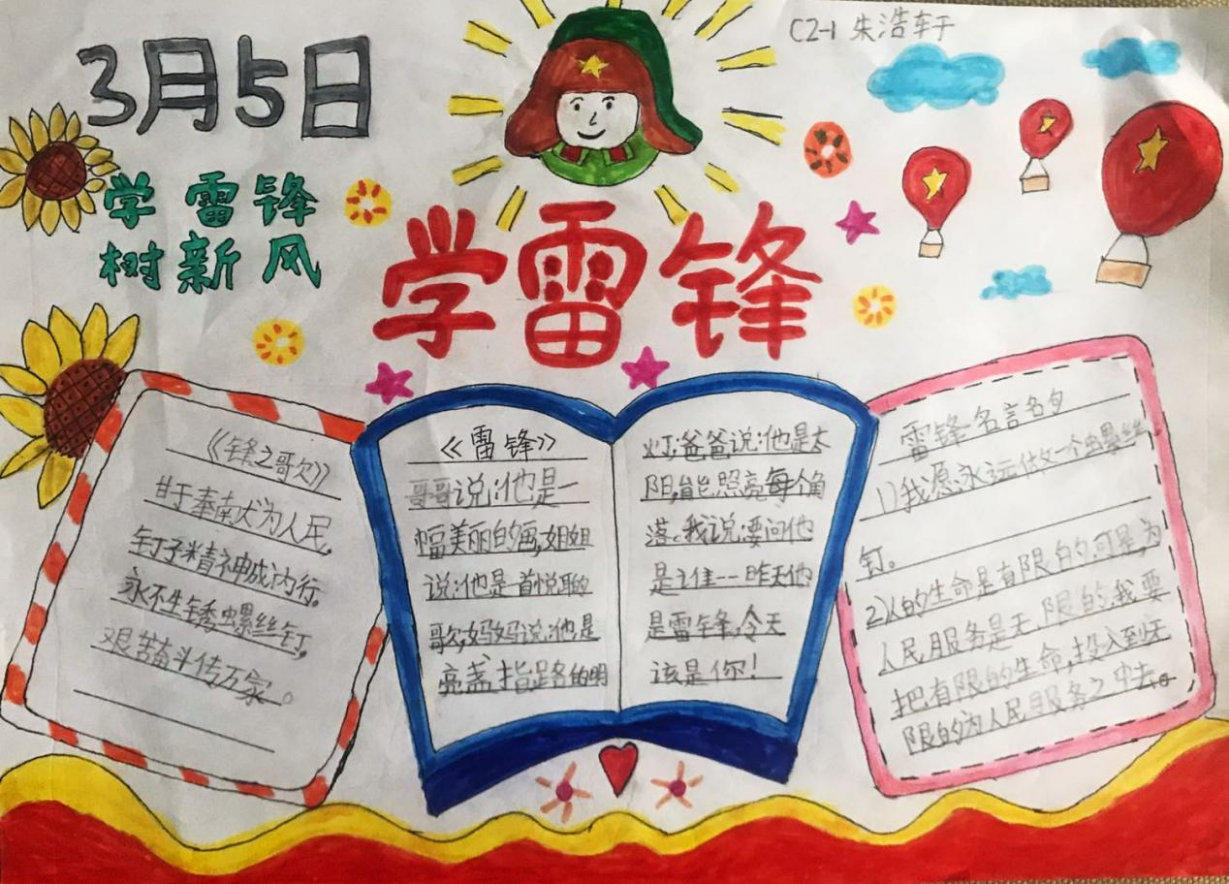 C2-1 朱浩轩
3月5日
学雷锋
树新风
学雷锋
《锋之歌》
甘于奉献为人民,
钉子精神成内行。
永不生锈螺丝钉,
艰苦奋斗传万家。
《雷锋》
哥哥说:他是一
幅美丽的画,姐姐
说:他是一首悦耳的
歌,妈妈说:他是
亮盏,指路的明
灯;爸爸说:他是太
阳,能照亮每个角
落。我说:要问他
是谁--昨天他
是雷锋,今天
该是你!
雷锋名言名句
1)我愿永远做一个螺丝
钉。
2)人的生命是有限的,可是,为
人民服务是无限的,我要
把有限的生命,投入到无
限的为人民服务之中去。